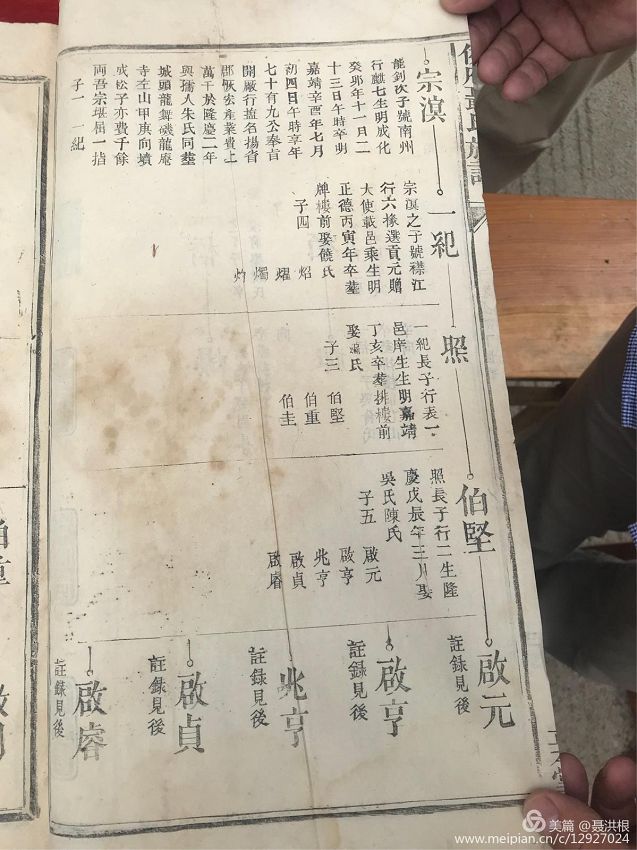 宗漠
能釗次子號南州
行麒七生明成化
癸卯年十一月二
十三日午時卒明
嘉靖辛酉年七月
初四日午時享年
七十有九公奉旨
開廠行塩名揚省
郡恢宏產業費上
萬千於隆慶二年
與孺人朱氏同塟
城頭龍舞磯龍庵
寺左山甲庚向墳
成松子亦費千餘
両吾宗堪屈一指
子一 一紀
一紀
宗漠之子號襟江
行六掾選貢元贈
大使載邑乘生明
正德丙寅年卒塟
牌樓前娶饒氏
子四 炤
燿
燭
灼
照
一紀長子行表一
邑庠生生明嘉靖
丁亥卒塟排樓前
娶 氏
子三 伯堅
伯重
伯圭
伯堅
照長子行二生隆
慶戊辰年三月娶
吳氏陳氏
子五 啟元
啟亨
兆亨
啟貞
啟睿
啟元
註錄見後
啟亨
註錄見後
兆亨
註錄見後
啟貞
註錄見後
啟睿
註錄見後
美篇 @聂洪根
www.meipian.cn/c/12927024